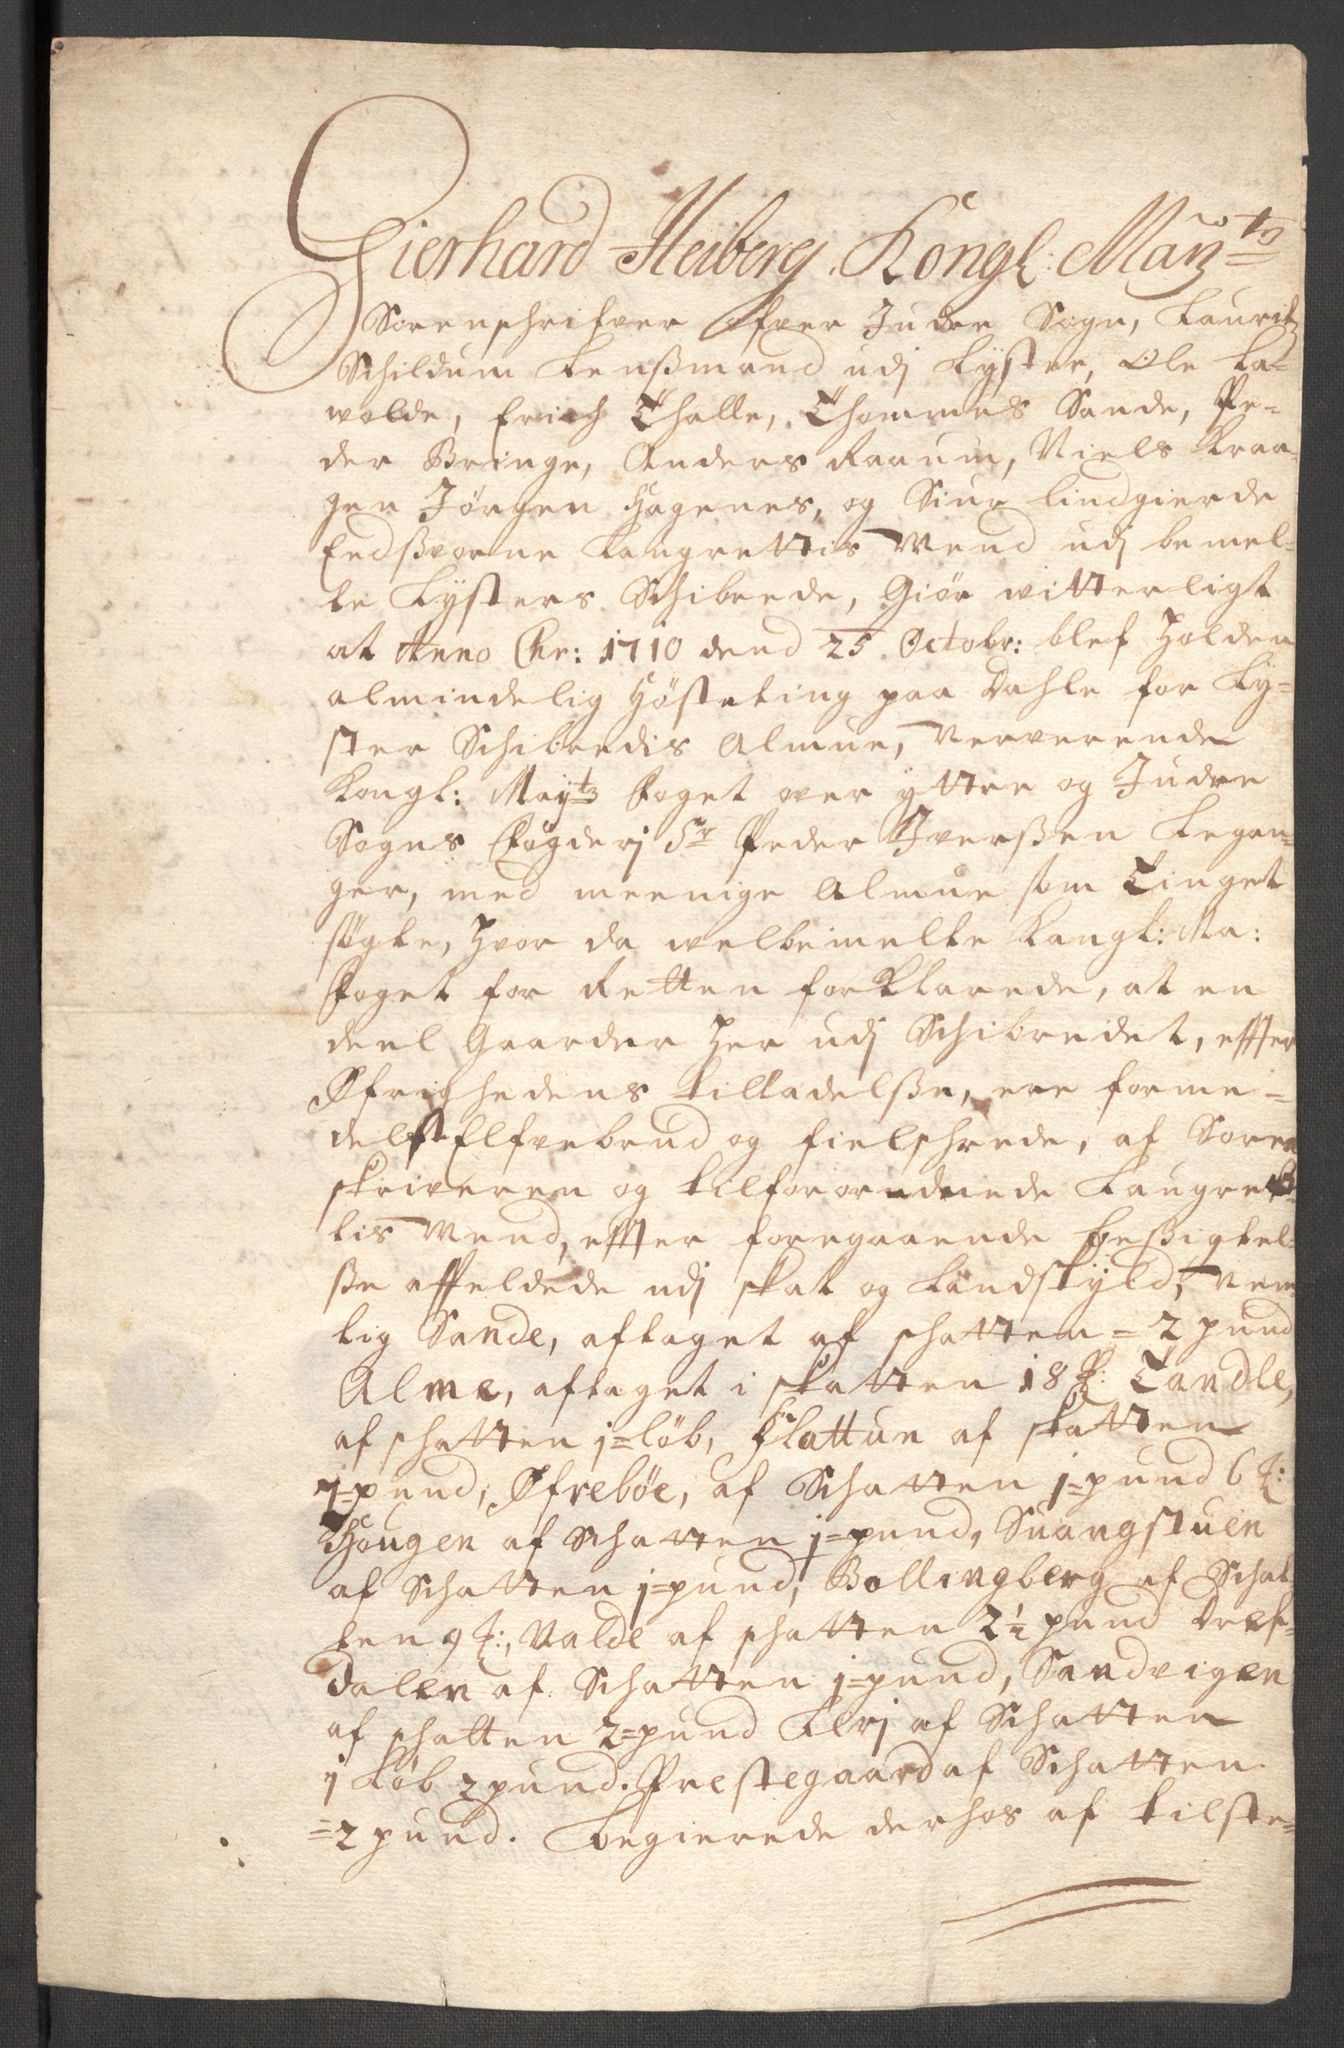 Gierhard Heiberg. Kongl: Maÿ:ts
Sorenschrifver ofver Indre Sogn, Lauritz
Schildum Lenßmand udj Lyster, Ole La-
wolde, Erich Thalle, Thommes Sande, Pe-
der Bringe, Anders Raaum, Niels Kraa-
ger Jørgen Hagenes, og Siur Lindgierde
Eedßvorne Laugrettis Mend udj bemel-
te Lysters Schibrede, Giør witterligt
at Anno Chr: 1710 dend 25. Octobr: blef holden
almindelig Høsteting paa Dahle for Ly-
ster Schibredis Almue, Nerverende
Kongl: Mayts foget over yttre og Indre
Sogns fögderj Sr Peder Iverßen Legan-
ger, med meenige Almue som Tinget
søgte, hvor da welbemelte Kongl: Ma:
foget for Retten forklarede, at en
deel Gaarder her udj Schibredet, effter
Øfrighedens tilladelße, ere forme-
delst Elfvebrud og fielschrede, af Soren
skriveren og tilforordnede Laugret-
tis Mend, effter foregaaende beßigtel-
ße affeldede udj skat og Landskyld, Nem
lig Sande, aftaget af schatten = 2 pund
Alme, aftaget i skatten 18 ℔: Tandle,
af schatten j=løb, Flattun af skatten
j=pund, Øfrebøe, af Schatten j=pund 6 ℔:
Hougen af Schatten j=pund, Suangstuen
af Schatten j=pund, Bollingberg af Schat
ten 9 ℔:, Valde af schatten 2½ pund Dref-
dalen af Schatten j=pund, Sandvigen
af schatten 2=pund Lerj af Schatten
j Løb 2 pund. Prestegaard af Schatten
=2 pund. Begierede derhos af tilste-